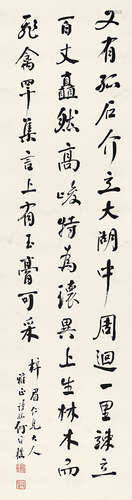 又有孤石介立大湖中周迴一里竦立
百丈矗然高峻特為瓌異上生林木而
飛禽罕集言上有玉膏可采
梓眉仁兄大人
雅正